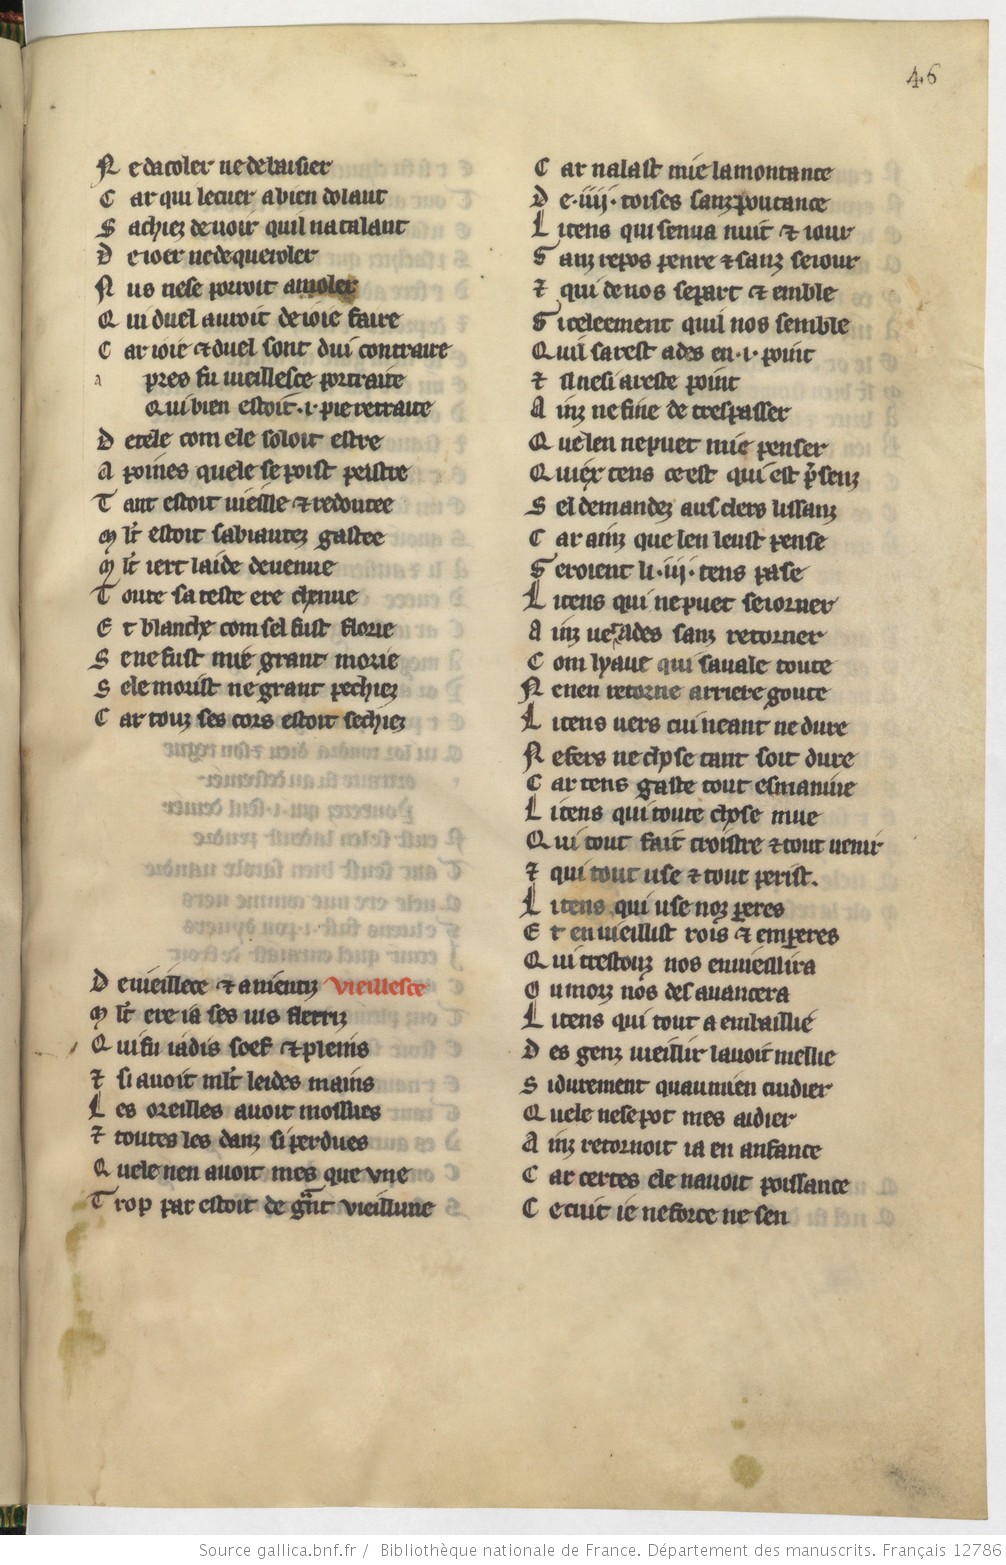 46
N e dacoler ne de baisier
C ar qui le cuer a bien dolant
S achiez de uoir quil na talant
D e ioer ne de queroler
N us ne se porroit amoler
Q ui duel auroit de ioie faire
C ar ioie ⁊ duel sont dui contraire
a pres fu uieillesce portraite
Qui bien estoit .i. pie retraite
D e tele com ele soloit estre
A poines quele se poist peistre
T ant estoit uieille ⁊ redoutee
M lt estoit sa biautez gastee
M lt iert laide deuenue
T oute sa teste ere chenue
E t blanche com sel fust florie
S e ne fust mie grant morie
S ele morist ne grant pechiez
C ar touz ses cors estoit sechiez
D e uieillece ⁊ anientiz vieillesce
M lt ere ia ses uis fletriz
Q ui fu iadis soef ⁊ pleins
⁊ si auoit mlt leides mains
L es oreilles auoit mossues
⁊ toutes les danz si perdues
Q uele nen auoit mes que vne
T rop par estoit de grant vieillune
C ar nalast mie la montance
D e .iiij. toises sanz poutance
L i tens qui senua nuit ⁊ iour
S anz repos penre ⁊ sanz seiour
⁊ qui de nos se part ⁊ emble
S i celeement quil nos semble
Quil sarest ades en .i. point
⁊ il ne si areste point
A inz ne fine de trespasser
Q uelen ne puet mie penser
Q uiex tens ce est qui est p̃senz
S el demandez aus clers lissanz
C ar ainz que len leust pense
S eroient li .iij. tens passe
L i tens qui ne puet seiorner
A inz ue ades sanz retorner
C om lyaue qui sauale toute
N en en retorne arriere goute
L i tens uers cui neant ne dure
N e fers ne chose tant soit dure
C ar tens gaste tout esmaniue
L i tens qui toute chose mue
Q ui tout fait croistre ⁊ tout uenir
⁊ qui tout use ⁊ tout perist.
L i tens qui use noz peres
E t enuieillist rois ⁊ emperes
Q ui trestouz nos enuieillira
O u morz nos desauancera
L i tens qui tout a en baillie
D es genz uieillir lauoit uiellie
S i durement quau mien cuidier
Q uele ne se pot mes aidier
A inz retornoit ia en anfance
C ar certes ele nauoit poissance
C e cuit ie ne force ne sen
Source gallica.bnf.fr / Bibliothèque nationale de France. Département des manuscrits. Français 12786